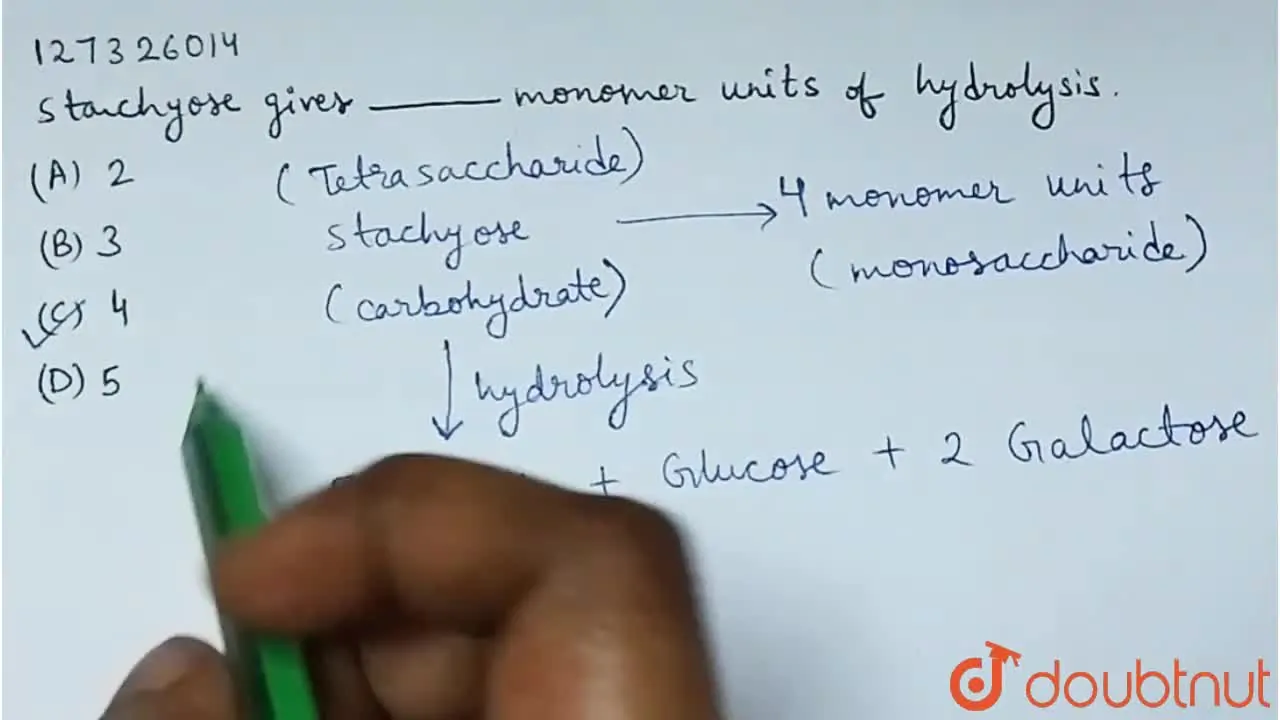 127326014
Stachyose gives ——— monomer units of hydrolysis.
(A) 2
(B) 3
(C) 4
(D) 5
(Tetrasaccharide)
stachyose
(carbohydrate)
→ 4 monomer units
(monosaccharide)
↓ hydrolysis
+ Glucose + 2 Galactose
doubtnut